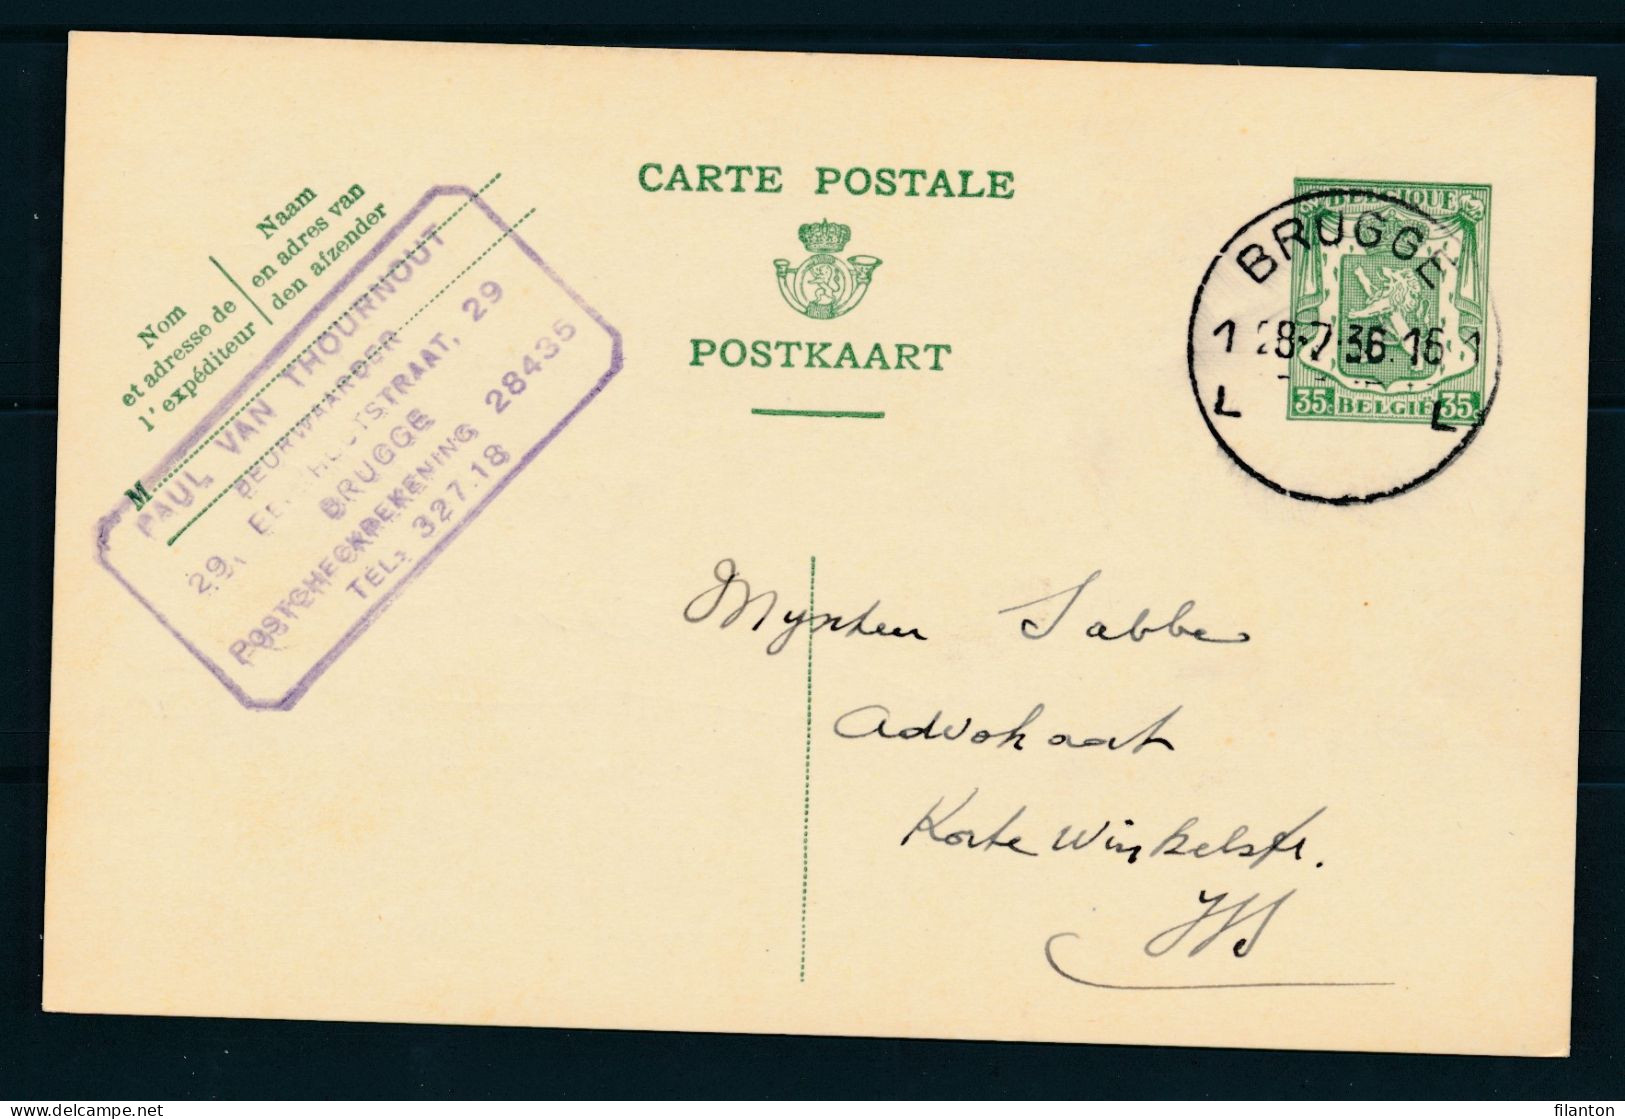 CARTE POSTALE
POSTKAART
Naam
en adres van
den afzender
Nom
et adresse de
l'expéditeur
M
PAUL VAN THOURNOUT
DEURWAARDER
29, STRAAT, 29
BRUGGE
POSTCHECKREKENING 28435
TEL: 327.18
BELGIQUE
BRUGGE
1 28-7.36.16 1
L L
35c BELGIE 35c
Mynheer Sabbe
Advokaat
Korte Winkelstr.
delcampe.net
filanton